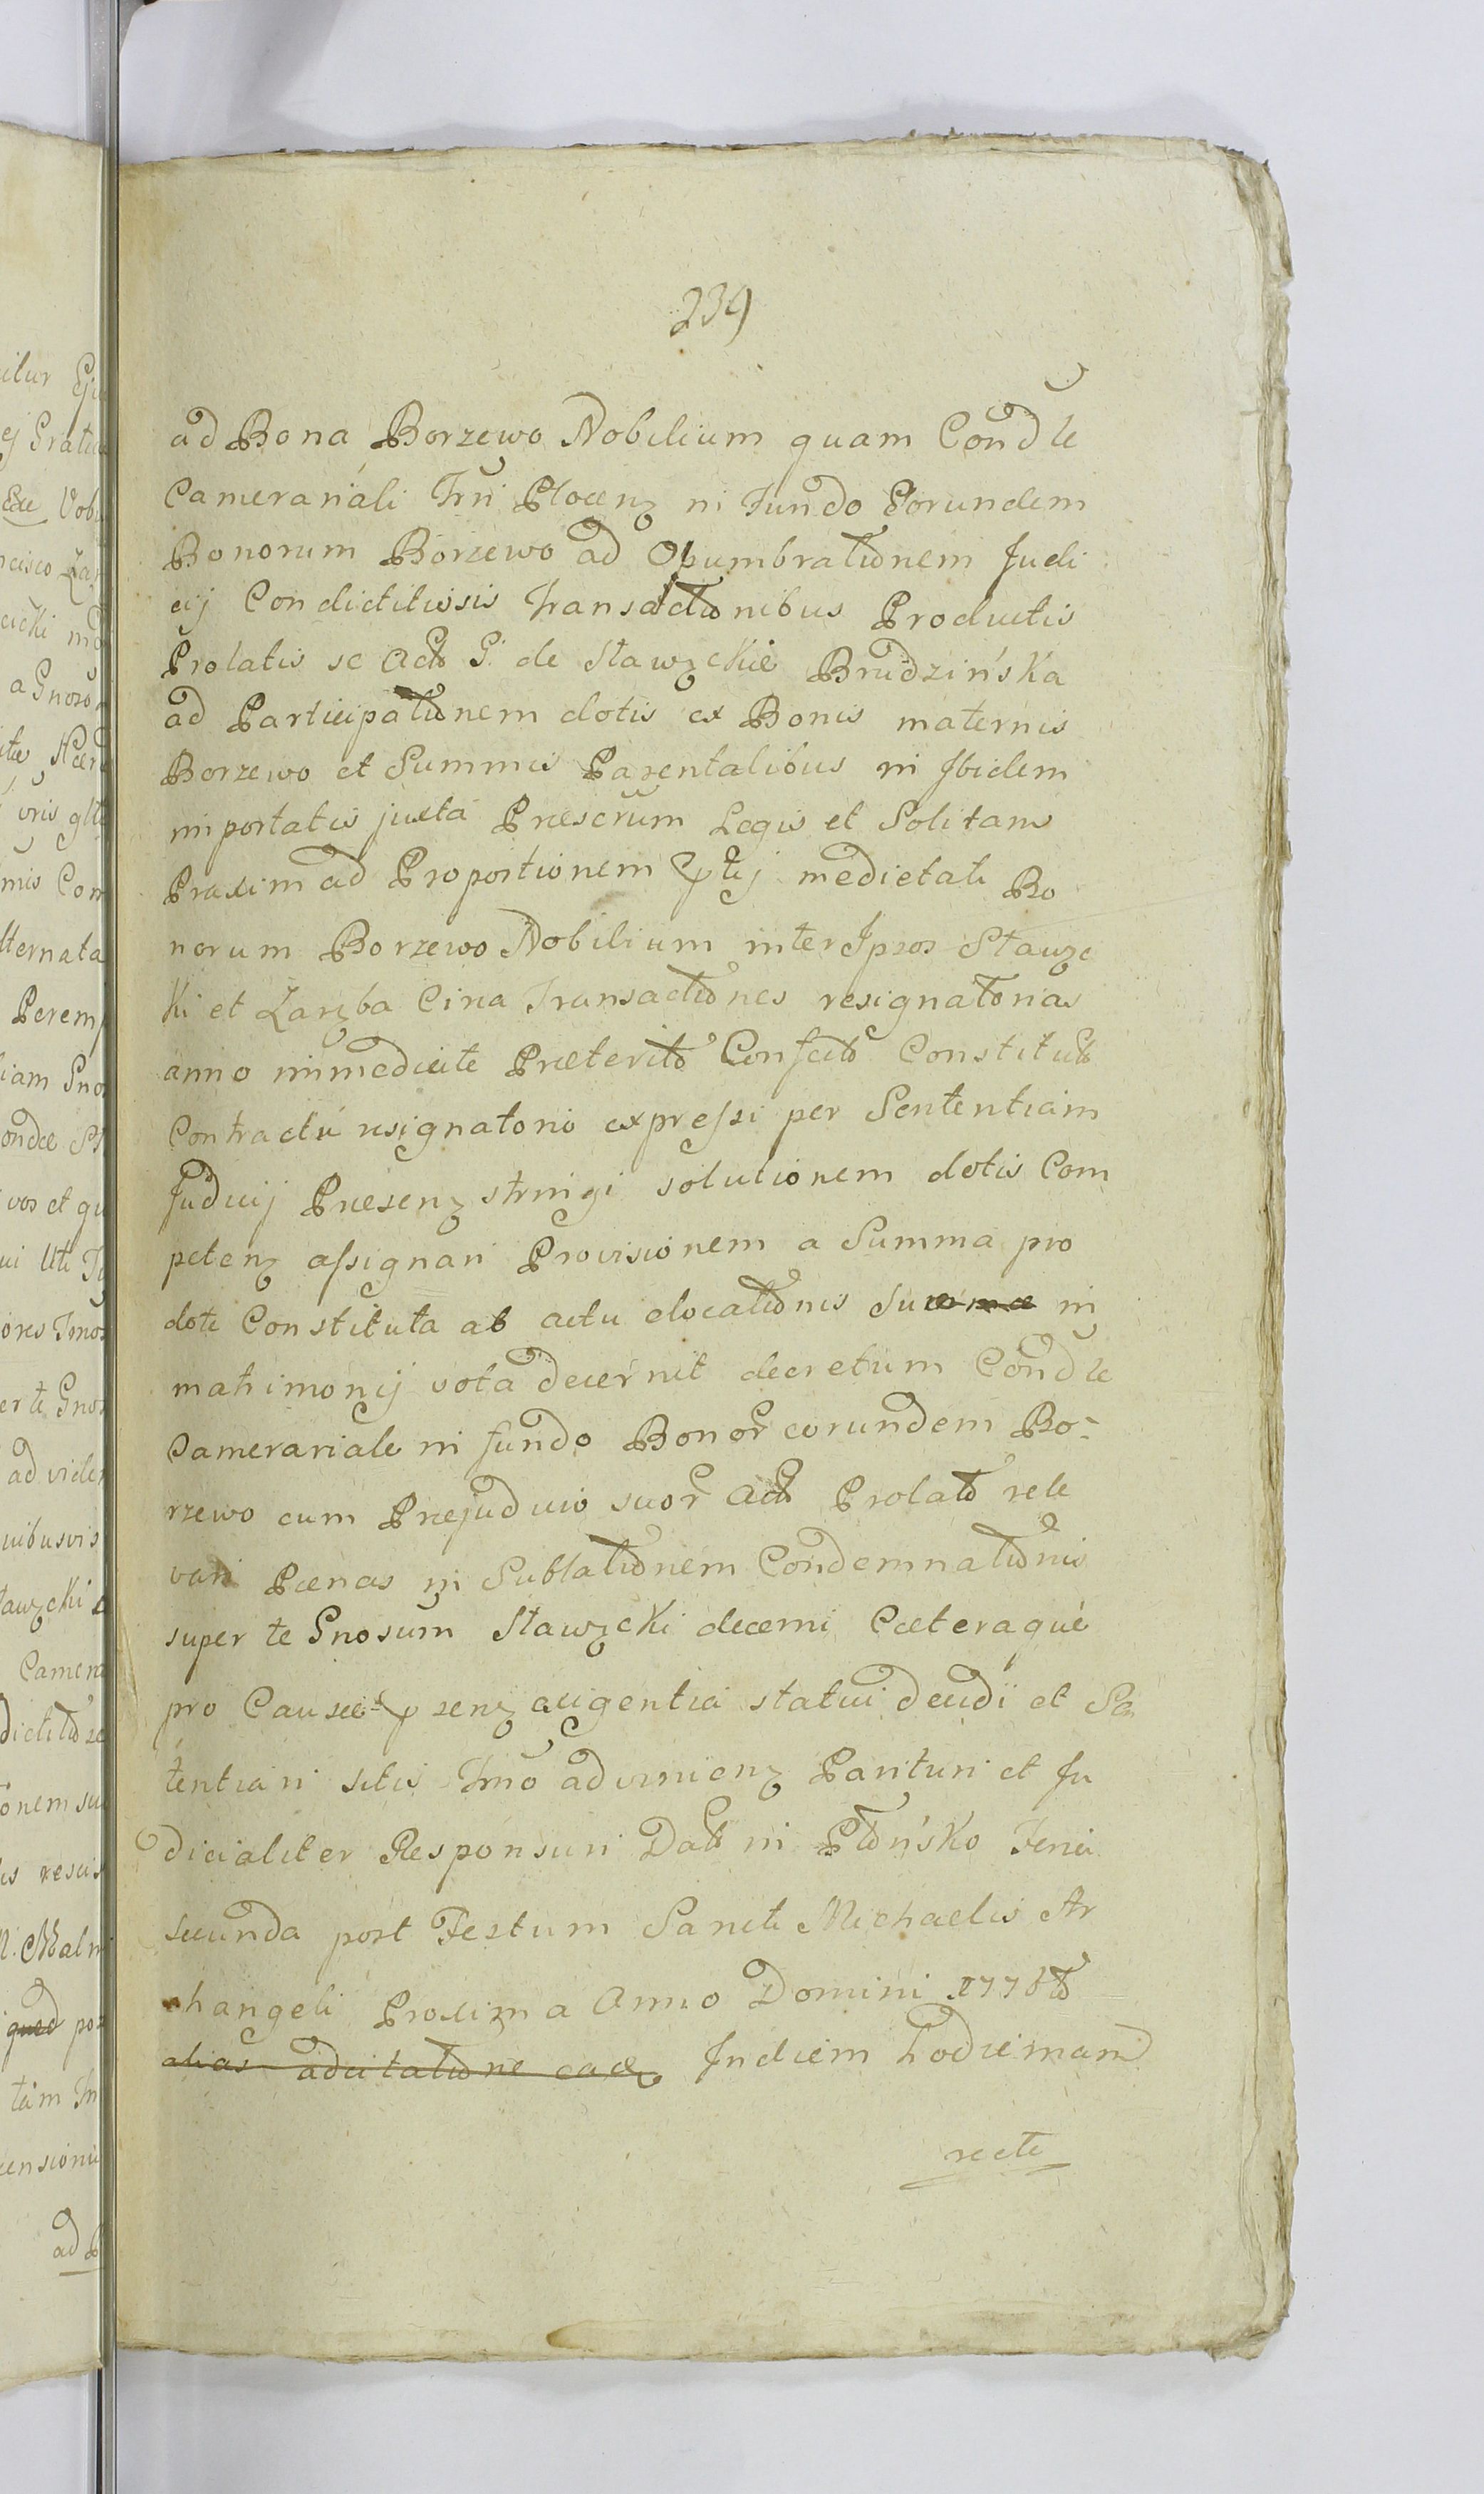 239
ad Bona Borzewo Nobilium quam Condle
Camerariali Trri Plocenz in Fundo Eorundem
Bonorum Borzewo ad Obumbrationem Judi
cij Condictitiosis Transactionibus Productis
Prolatis se Acto G. de Stawzckie Brudzińska
ad Participationem dotis ex Bonis maternis
Borzewo et Summis Parentalibus in Ibidem
importatis juxta Præscrum Legis et Solitam
Praxim ad Proportionem medietati Bo
norum Borzewo Nobilium inter Ipsos Stawzc
ki et Zarzba Circa Transactiones resignatorias
anno immediate Præterito Confecto Constituto
Contractu resignatorio expressi per Sententiam
Judicij Præsenz stringi solutionem dotis Com
petenz assignari Provisionem a Summa pro
dote Constituta ab actu elocationis in
matrimonij vota decernit decretum Condle
Camerariale in fundo Bonor eorundem Bo-
rzewo cum Præjudicio suor Acto Prolato rele
vari Pœnas in Sublationem Condemnationis
super te Gnosum Stawzcki decerni Cæteraque
pro Causæ senz exigentia statui decidi et Sen
tentiari sitis Trmo advenienz Parituri et Ju
dicialiter Responsuri Dato in Płońsko Feria
secunda post Festum Sancti Michaelis Ar
changeli Proxima Anno Domini 1776to
alias adcitatione Indiem hodiernam
recte